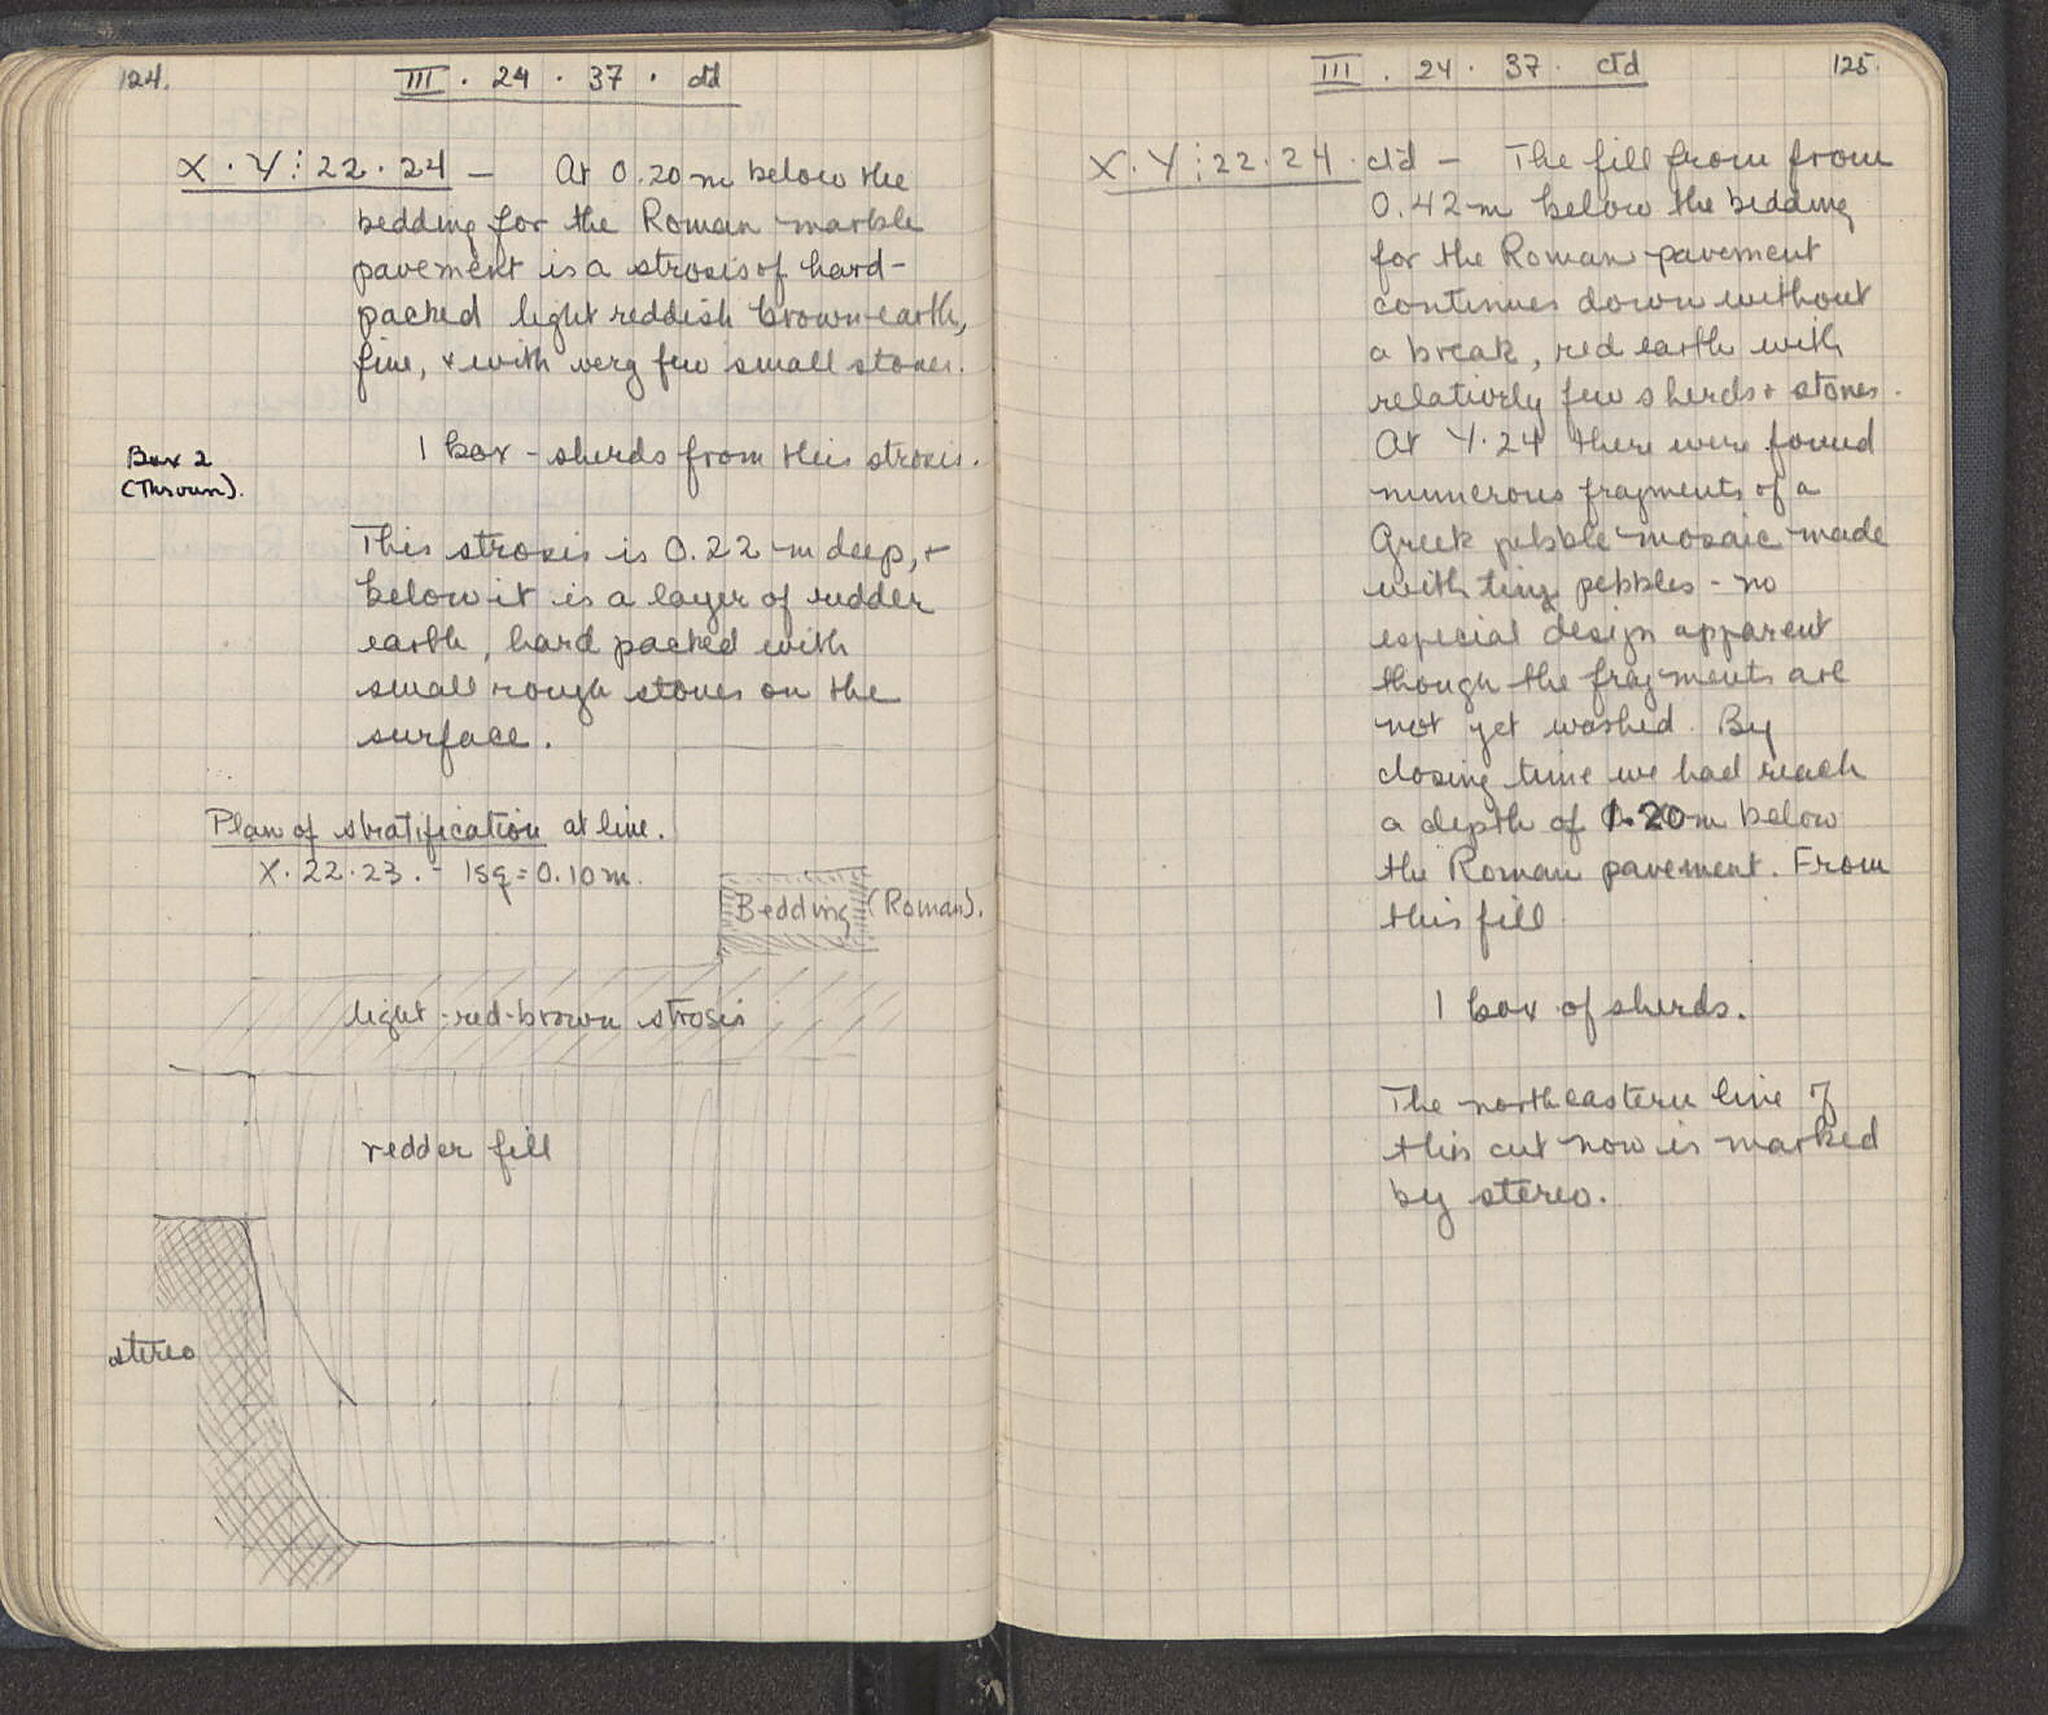 124.
III . 24 . 37 . ctd
X . Y : 22 . 24 – At 0.20 m below the
bedding for the Roman marble
pavement is a strosis of hard-
packed light reddish brown earth,
fine, + with very few small stones.
Box 2
(Thrown).
1 box - sherds from this strosis.
This strosis is 0.22 m deep, +
below it is a layer of redder
earth, hard packed with
small rough stones on the
surface.
Plan of stratification at line.
X . 22 . 23 . - 1 sq = 0.10 m.
Bedding (Roman).
light-red-brown strosis
redder fill
stereo
III . 24 . 37 . ctd
125.
X . Y : 22 . 24 . ctd – The fill from from
0.42 m below the bedding
for the Roman pavement
continues down without
a break, red earth with
relatively few sherds + stones.
At Y . 24 there were found
numerous fragments of a
Greek pebble mosaic made
with tiny pebbles - no
especial design apparent
though the fragments are
not yet washed. By
closing time we had reach
a depth of 1.20 m below
the Roman pavement. From
this fill
1 box of sherds.
The northeastern line of
this cut now is marked
by stereo.